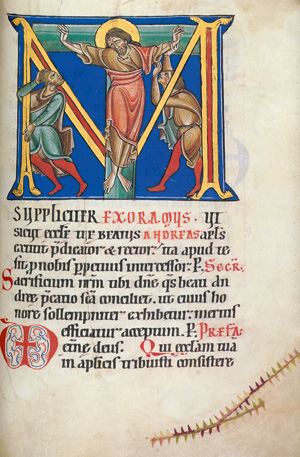 M
SUPPLICITER EXORAMUS. UT
sicut eccłę tuę BEATUS ANDREAS apłs
extitit p̄dicator & rector. ita apud te
sit pro nobis ppetuus intercessor. P. SECR̄.
Sacrificium nr̄m tibi dn̄e qs beati an
dreę p̄catio sc̄a conciliet. ut cuius ho
nore sollempniter exhibetur. meritis
efficiatur acceptum. P. PREFA.
M ęterne deus. Qui ecclam tuā
in aplicis tribuisti consistere